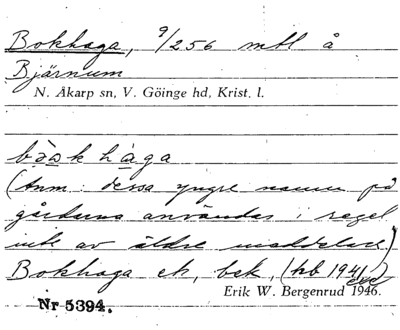 Bokhaga, 9/256 mtl å
Bjärnum
N. Åkarp sn, V. Göinge hd, Krist. l.
båskhaga
(Anm: dessa yngre namn på
gårdarna användas i regel
inte av äldre meddelare)
Bokhaga ek, bek, (kb 1941
Erik W. Bergenrud 1946.
Nr 5394.